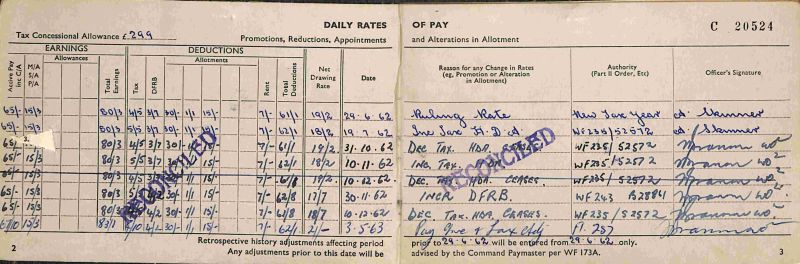 DAILY RATES OF PAY
C 20524
Tax Concessional Allowance £299
Promotions, Reductions, Appointments and Alterations in Allotment
EARNINGS
DEDUCTIONS
Active Pay inc C/A
M/A S/A P/A
Allowances
Total Earnings
Tax
DFRB
Allotments
Rent
Total Deductions
Net Drawing Rate
Date
Reason for any Change in Rates (eg, Promotion or Alteration in Allotment)
Authority (Part II Order, Etc)
Officer's Signature
65/- 15/3 80/3 4/5 3/7 30/- 1/1 15/- 7/- 61/1 19/2 29.6.62 Ruling Rate New Tax Year
65/- 15/3 80/3 5/5 3/7 30/- 1/1 15/- 7/- 62/1 18/2 19.7.62 Inc Tax H.D.A. WF235/52572
80/3 4/5 3/7 30/- 7/- 61/1 19/2 31.10.62 DEC TAX. HDA. CEASES WF235/52572
65/- 15/3 80/3 5/5 3/7 15/- 7/- 62/1 18/2 10.11.62 INC. TAX. WF235/52572
65/- 15/3 80/3 4/5 1/1 15/- 7/- 19/2 10.12.62 DEC. TAX. HDA. CEASES. WF235/52572
65/- 15/3 80/3 1/1 15/- 7/- 62/8 17/7 30.11.62 INCR DFRB. WF243
65/- 15/3 80/3 4/2 30/- 1/1 15/- 7/- 61/8 18/7 10.12.62 DEC. TAX. HDA. CEASES WF235/52572
15/3 4/2 30/- 1/1 15/- 7/- 62/1 21/- 3.5.63 F1. 257
RECONCILED
RECONCILED
2
Retrospective history adjustments affecting period prior to 29.6.62 will be entered from 29.6.62 only.
Any adjustments prior to this date will be advised by the Command Paymaster per WF 173A.
3